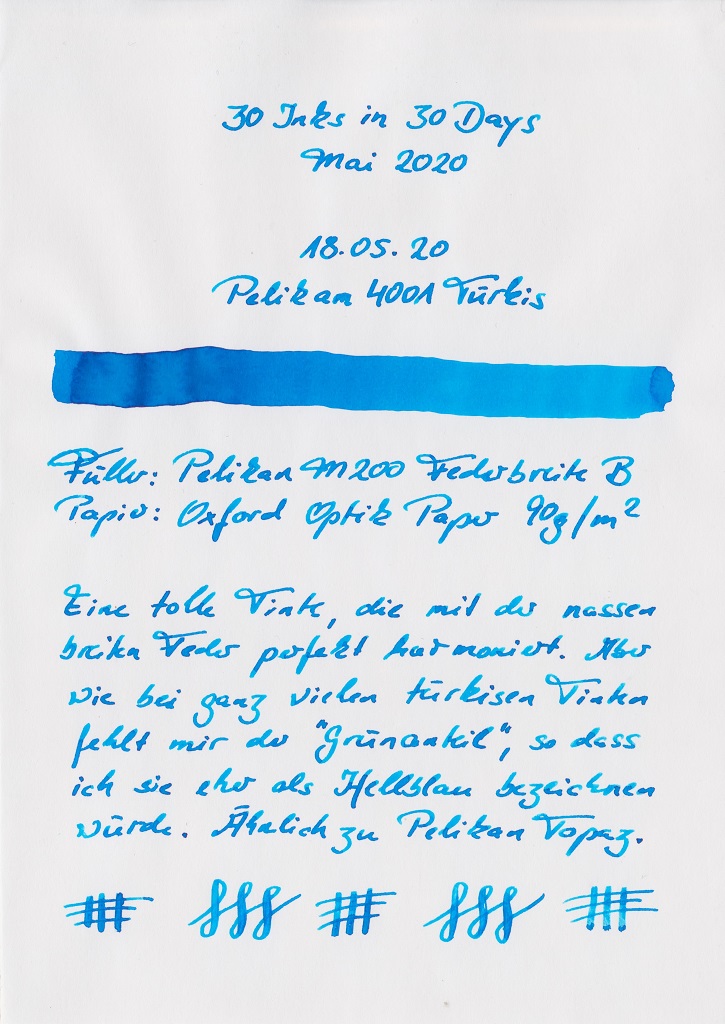 30 Inks in 30 Days
Mai 2020
18.05.20
Pelikan 4001 Türkis
Füller: Pelikan M200 Federbreite B
Papier: Oxford Optik Paper 90g/m²
Eine tolle Tinte, die mit der nassen
breiten Feder perfekt harmoniert. Aber
wie bei ganz vielen türkisen Tinten
fehlt mir der "Grünanteil", so dass
ich sie eher als Hellblau bezeichnen
würde. Ähnlich zu Pelikan Topaz.